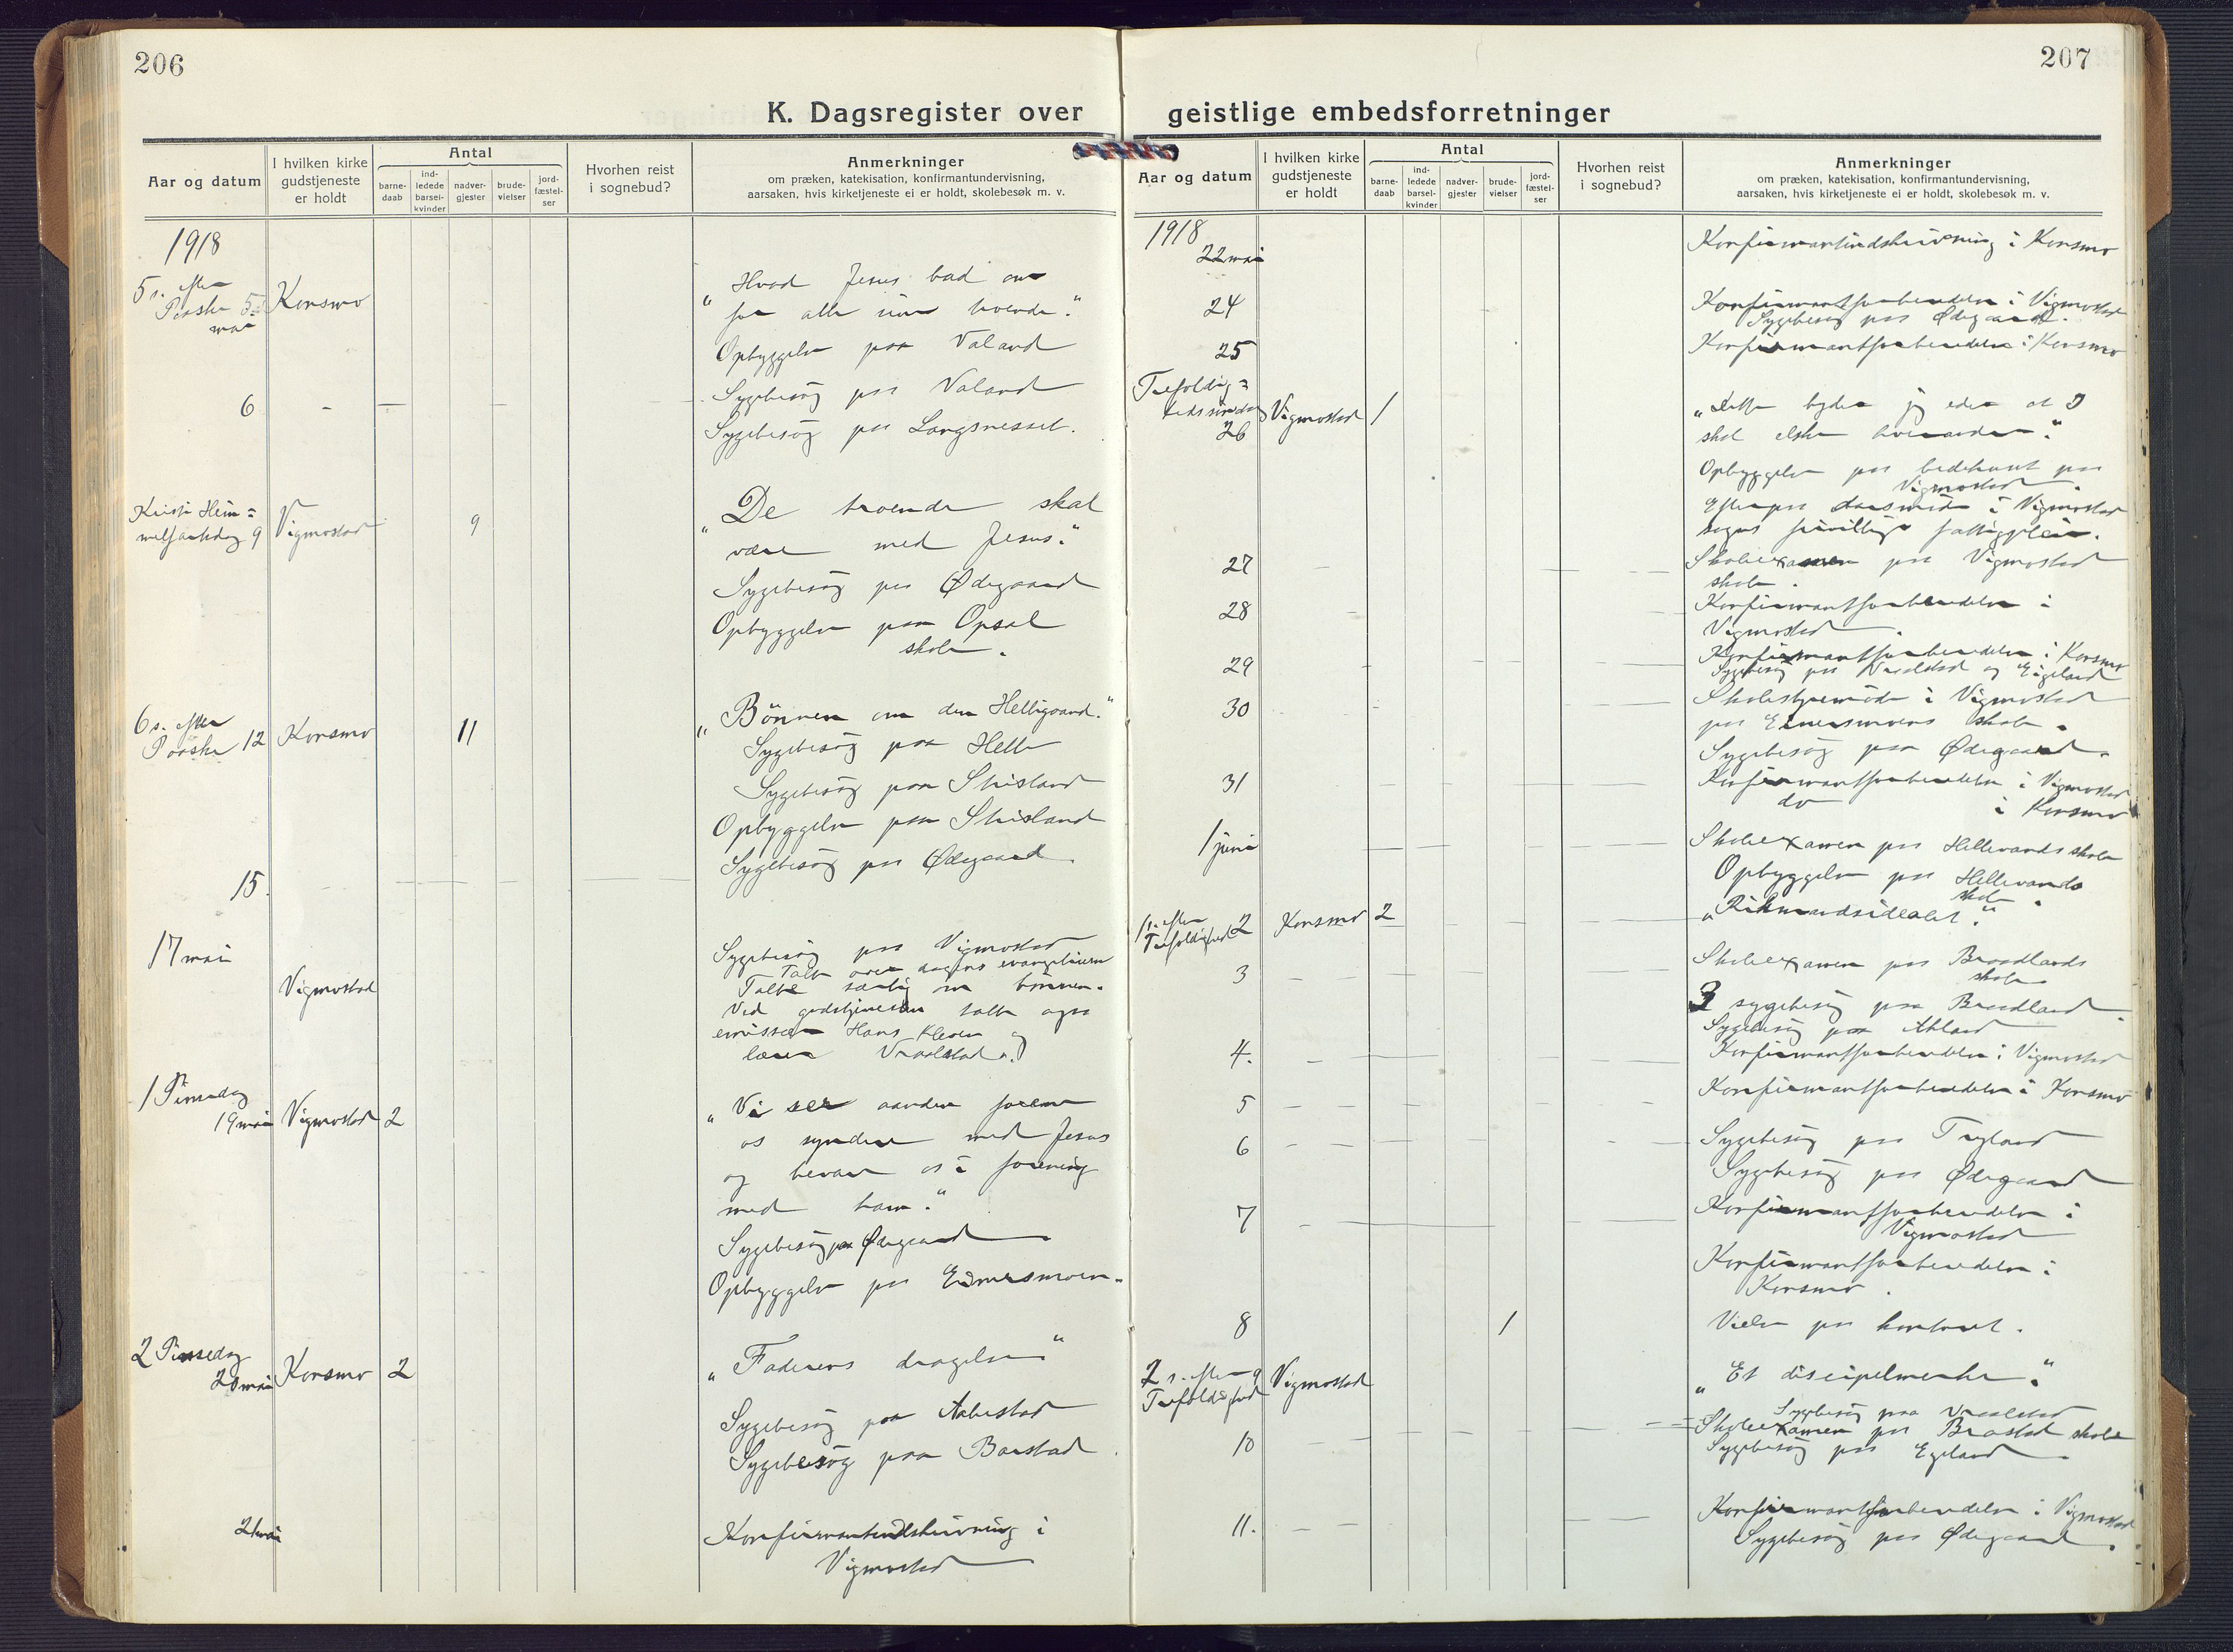 206
K. Dagsregister over
Aar og datum
I hvilken kirke
gudstjeneste
er holdt
Antal
barne-
daab
ind-
ledede
barsel-
kvinder
nadver-
gjester
brude-
vielser
jord-
fæstel-
ser
Hvorhen reist
i sognebud?
Anmerkninger
om præken, katekisation, konfirmantundervisning,
aarsaken, hvis kirketjeneste ei er holdt, skolebesøk m. v.
1918
5 s. efter
Paaske 5
mai
Konsmo
"Hvad Jesus bad om
for alle sine troende."
Opbyggelse paa Valand
6 -
Sygebesög paa Valand
Sygebesög paa Langsnesset.
Kristi Him=
melfartsdag 9 Vigmostad 9
"De troende skal
være med Jesus."
Sygebesög paa Ødegaard
Opbyggelse paa Opsal
skole.
6 s. efter
Paaske 12 Konsmo 11
"Bönnen om den Helligaand."
Sygebesög paa Helle
Sygebesög paa Stusland
Opbyggelse paa Stusland
15.
Sygebesög paa Ødegaard.
17 mai
Vigmostad
Sygebesög paa Vigmostad
Talte over dagens evangelium
Talte særlig om bönnen.
Ved gudstjenesten talte ogsaa
emissær Hans Kleven og
lærer Vraalstad.
1 Pinsedag
19 mai Vigmostad 2
"Vi ser aanden forene
os syndere med Jesus
og bevare os i forening
med ham."
Sygebesög paa Ødegaard
Opbyggelse paa Eimersmoen.
2 Pinsedag
20 mai Konsmo 2
"Faderens dragelse"
Sygebesög paa Aabestad
Sygebesög paa Baastad.
21 mai
Konfirmantindskrivning i
Vigmostad
207
geistlige embedsforretninger
Aar og datum
I hvilken kirke
gudstjeneste
er holdt
Antal
barne-
daab
ind-
ledede
barsel-
kvinder
nadver-
gjester
brude-
vielser
jord-
fæstel-
ser
Hvorhen reist
i sognebud?
Anmerkninger
om præken, katekisation, konfirmantundervisning,
aarsaken, hvis kirketjeneste ei er holdt, skolebesøk m. v.
1918
22 mai
Konfirmantindskrivning i Konsmo
24
Konfirmantforberedelse i Vigmostad
Sygebesög paa Ødegaard.
25
Konfirmantforberedelse i Konsmo
Trefoldig=
hedssöndag
26 Vigmostad 1
"Dette byder jeg eder at I
skal elske hverandre."
Opbyggelse paa bedehuset paa
Vigmostad.
Efterpaa aarsmöde i Vigmostad
sogns frivillige fattigpleie.
27
Skoleexamen paa Vigmostad
skole.
28
Konfirmantforberedelse i
Vigmostad.
29
Konfirmantforberedelse i Konsmo
Sygebesög paa Vraalstad og Eigeland
30
Skolestyremöde i Vigmostad
paa Eimersmoens skole.
Sygebesög paa Ødegaard.
31
Konfirmantforberedelse i Vigmostad
do i Konsmo
1 juni
Skoleexamen paa Hellevands skole
Opbyggelse paa Hellevands
skole.
1 s. efter
Trefoldighed 2 Konsmo 2
"Rikmandsidealet."
3
Skoleexamen paa Braadlands
skole
3 sygebesög paa Braadland.
Sygebesög paa Abland
4.
Konfirmantforberedelse i Vigmostad
5
Konfirmantforberedelse i Konsmo
6
Sygebesög paa Tryland
Sygebesög paa Ødegaard
7
Konfirmantforberedelse i
Vigmostad
Konfirmantforberedelse i
Konsmo.
8 1
Vielse paa kontoret.
2 s. efter 9
Trefoldighed Vigmostad
"Et discipelmerke."
Sygebesög paa Vraalstad
10
Skoleexamen paa Braastad skole
Sygebesög paa Egeland.
11.
Konfirmantforberedelse i Vigmostad
Sygebesög paa Ødegaard.